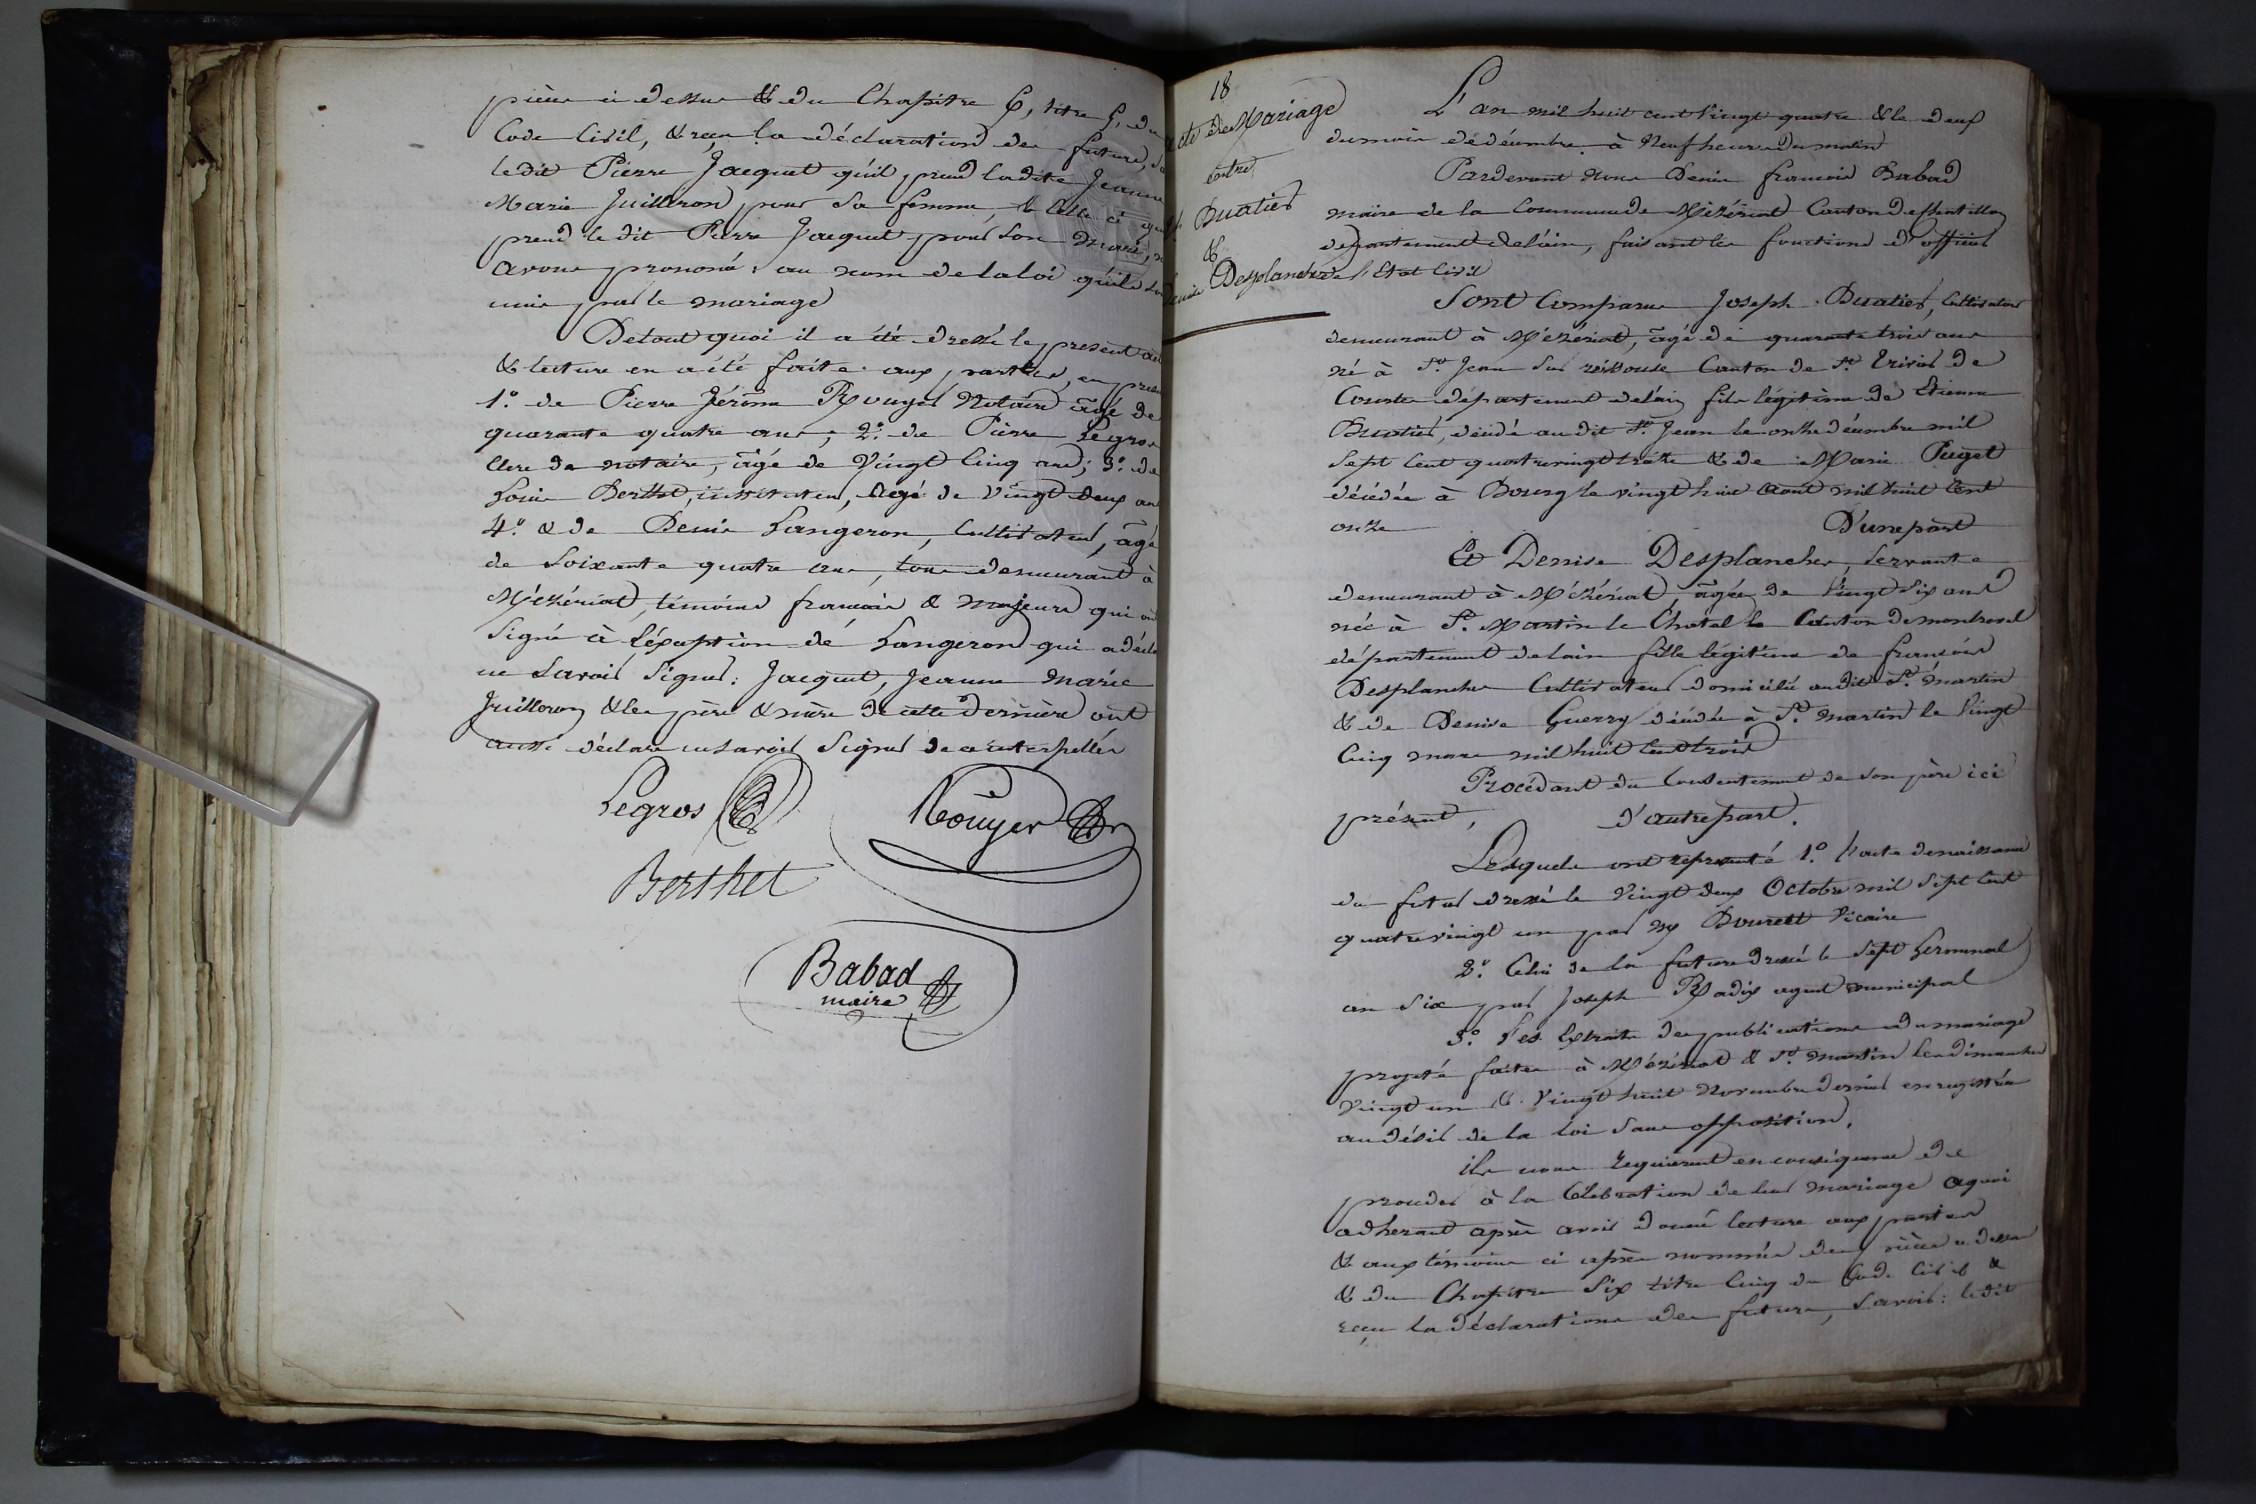 pièces ci dessus & du Chapitre 6, titre 5, du
Code Civil, & reçu la déclaration des futurs,
le dit Pierre Jacquet qu'il prend la dite Jeanne
Marie Juilleron pour sa femme, & celle ci
prend le dit Pierre Jacquet pour son mari,
avons prononcé au nom de la loi qu'ils sont
unis par le mariage
De tout quoi il a été dressé le présent
& lecture en a été faite aux parties, en
1.° de Pierre Jérôme Rouyer Notaire âgé de
quarante quatre ans; 2.° de Pierre Legros
Clerc de notaire, âgé de Vingt Cinq ans; 3.° de
Louis Berthet, instituteur, âgé de Vingt deux ans
4.° & de Denis Langeron, Cultivateur, âgé
de Soixante quatre ans, tous demeurant à
Mézériat, témoins français & majeurs qui ont
Signé à l'éxception de Langeron qui a
ne Savoir Signer: Jacquet, Jeanne Marie
Juilleron & les père & mère de cette dernière ont
aussi déclaré ne Savoir Signer de ce interpellés
Legros Rouyer
Berthet
Babad
maire
18
acte de Mariage
entre
Buatier
&
Denise Desplanches
L'an mil huit cent Vingt quatre & le deux
du mois de décembre à Neuf heures du matin
Pardevant Nous Denis françois Babad
maire de la Commune de Mézériat Canton de Chatillon
département de l'ain, faisant les fonctions d'officier
de l'Etat Civil
Sont Comparus Joseph Buatier, Cultivateur
demeurant à Mézériat, âgé de quarante trois ans
né à S.t Jean Sur reissouse Canton de S.t Trivier de
Courtes département de l'ain fils légitime de Etienne
Buatier, décédé au dit S.t Jean le onze décembre mil
Sept Cent quatrevingt treize & de Marie Puget
décédée à Bourg le vingt huit aout mil huit Cent
onze D'une part
Et Denise Desplanches, Servante
demeurant à Mézériat âgée de Vingt Six ans
née à S.t Martin le Chatel Canton de montrevel
département de l'ain fille légitime de françois
Desplanches Cultivateur domicilié au dit S.t martin
& de Denise Guerry décédée à S.t martin le Vingt
Cinq mars mil huit Cent trois
Procédant du Consentement de son père ici
présent, d'autre part.
Lesquels ont représenté 1.° l'acte de naissance
du futur dressé le Vingt deux Octobre mil Sept Cent
quatrevingt un par Vicaire
2.° Celui de la future dressé le Sept Germinal
an Six par Joseph Radix agent municipal
3.° Les Extraits des publications du mariage
projeté faites à Mézériat & S.t martin les dimanches
Vingt un & Vingt huit Novembre dernier enregistrés
au désir de la loi Sans opposition.
ils nous requierent en conséquence de
procéder à la Célébration de leur mariage à quoi
adherant après avoir donné lecture aux parties
& aux témoins ci après nommés des pièces ci dessus
& du Chapitre Six titre Cinq du Code Civil &
reçu la déclarations des futurs, Savoir: le dit